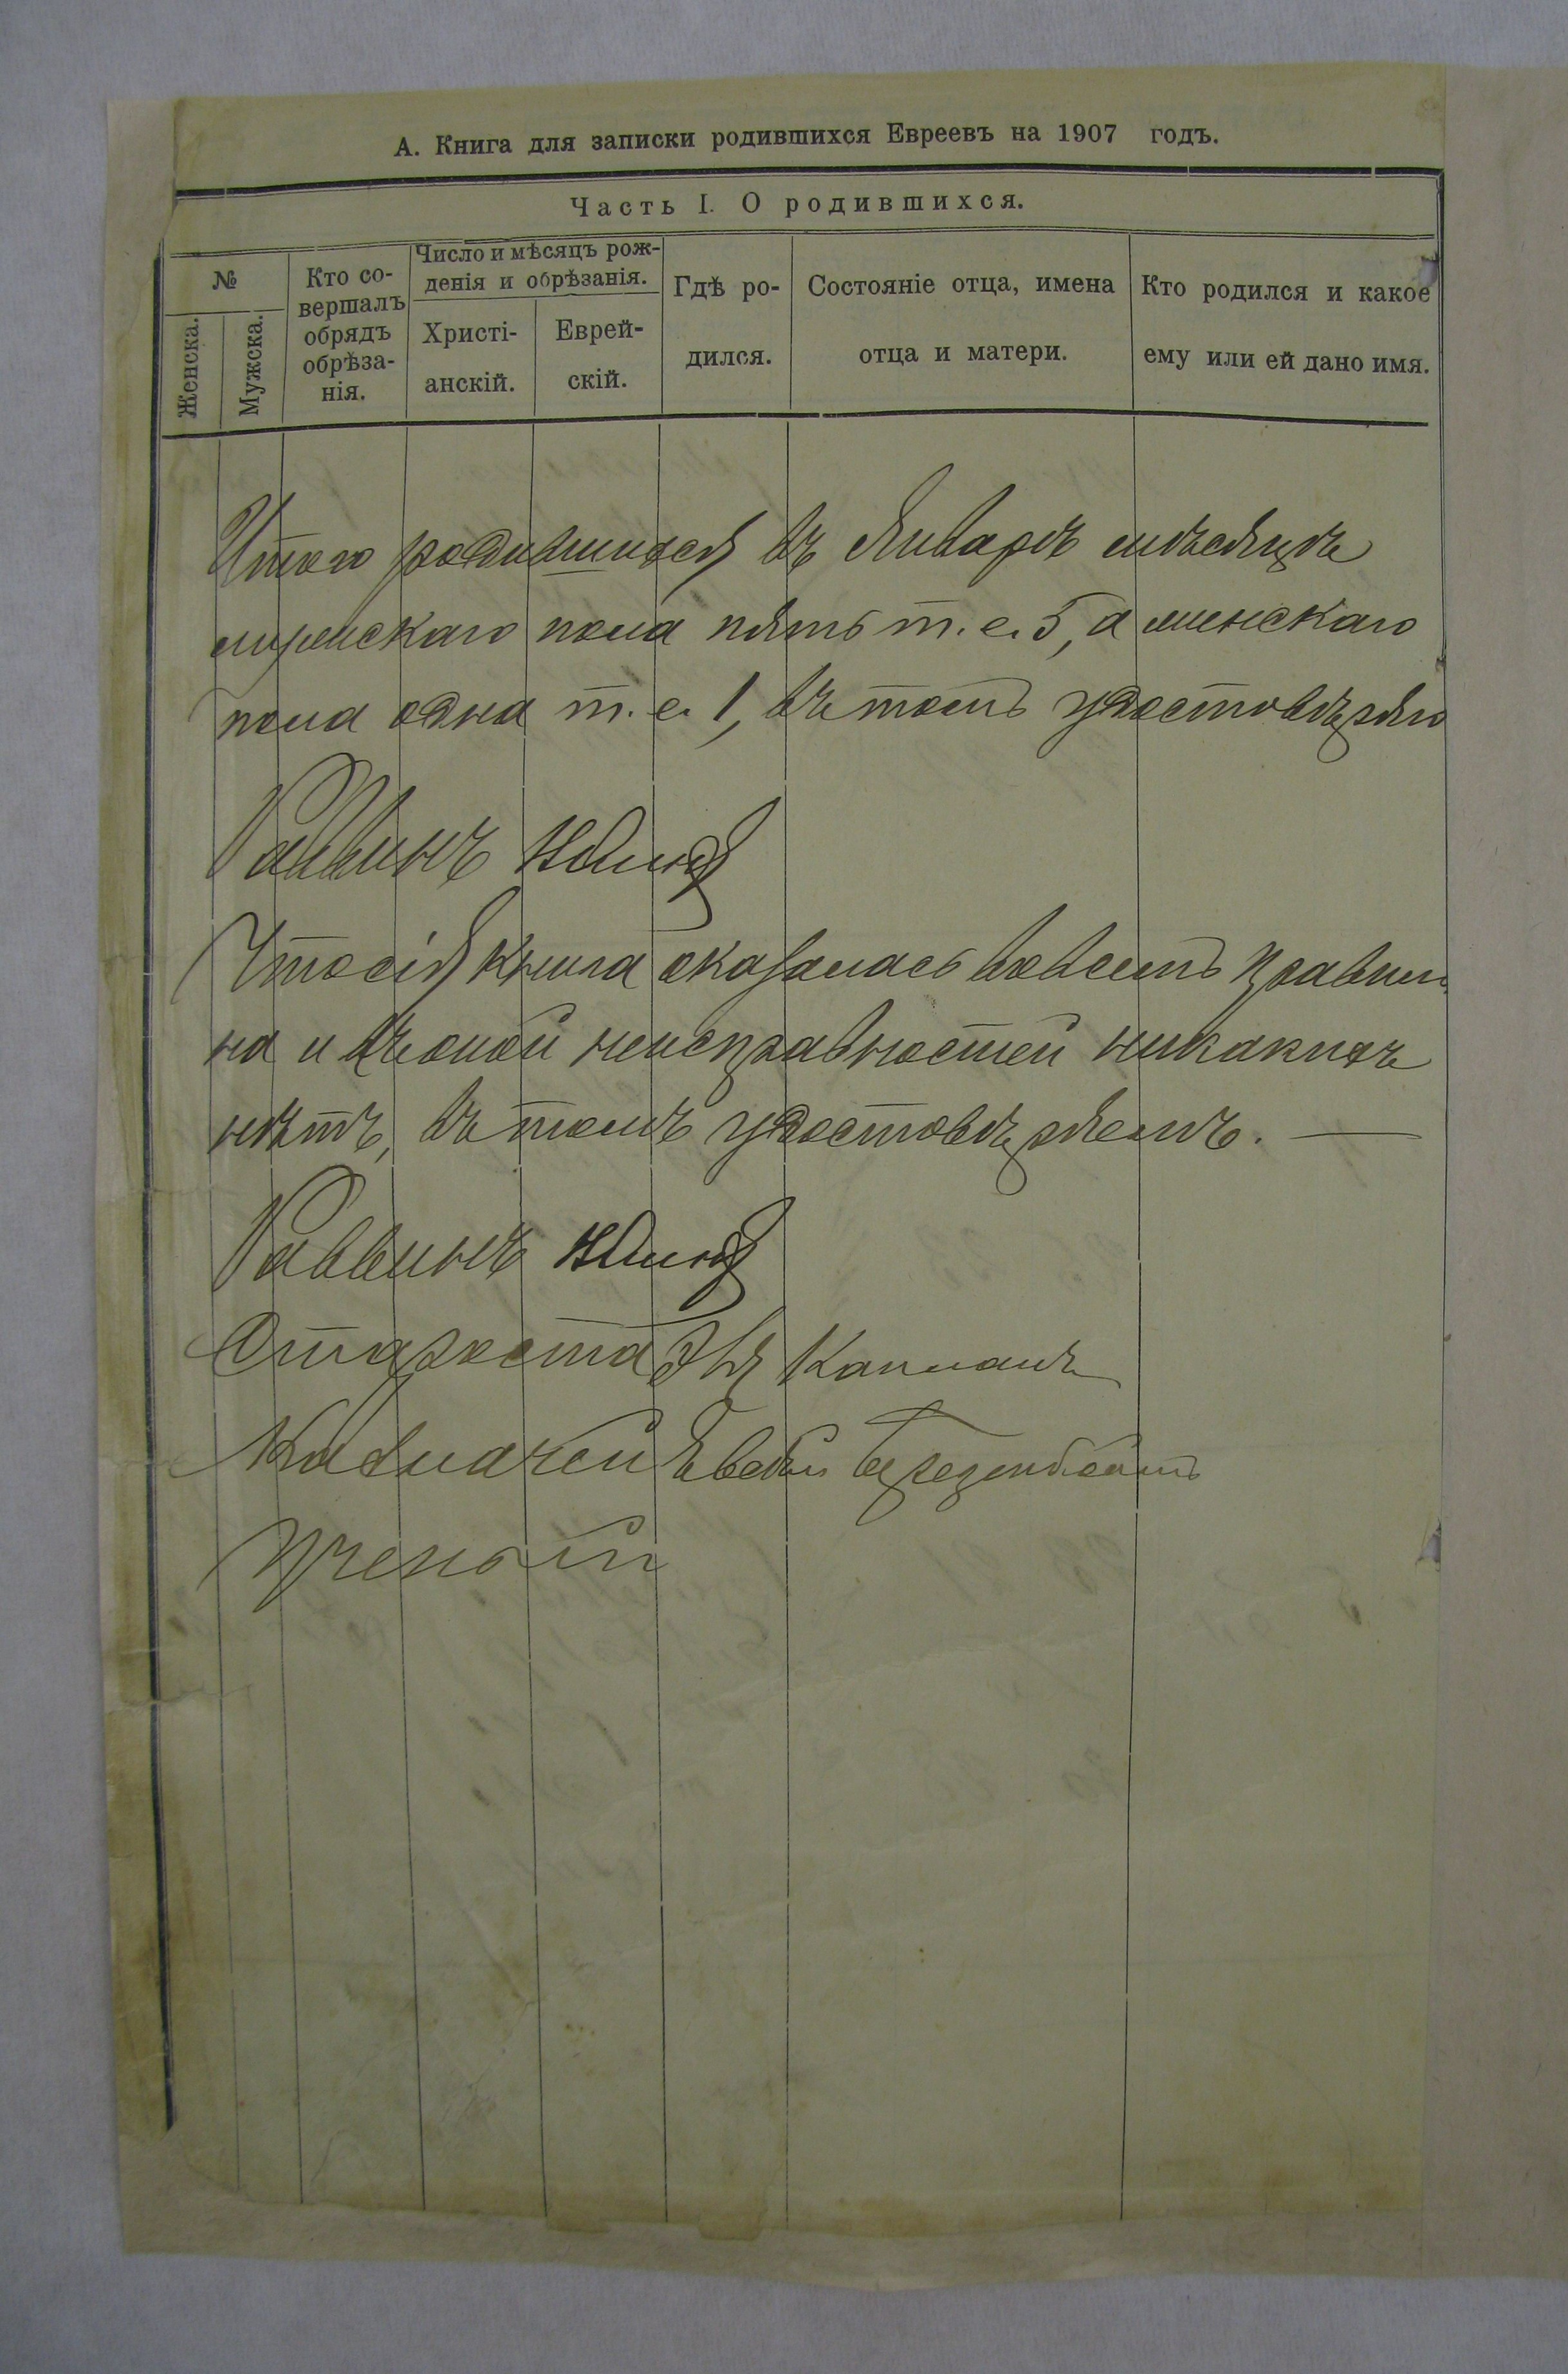 А. Книга для записки родившихся Евреевъ на 1907 годъ.
Часть I. О родившихся.
№
Женска.
Мужска.
Кто со-
вершалъ
обрядъ
обрѣза-
нія.
Число и мѣсяцъ рож-
денія и обрѣзанія.
Христі-
анскій.
Еврей-
скій.
Гдѣ ро-
дился.
Состояніе отца, имена
отца и матери.
Кто родился и какое
ему или ей дано имя.
Итого родившихся въ Январѣ мѣсяцѣ
мужскаго пола пять т. е. 5, а женскаго
пола одна т. е. 1, въ томъ удостовѣряю
Раввинъ
Что сія книга оказалась во всемъ правиль
на и въ оной неисправностей никакихъ
нѣтъ, въ томъ удостовѣряемъ. —
Раввинъ
Староста Капланъ
Казначей
Ученый